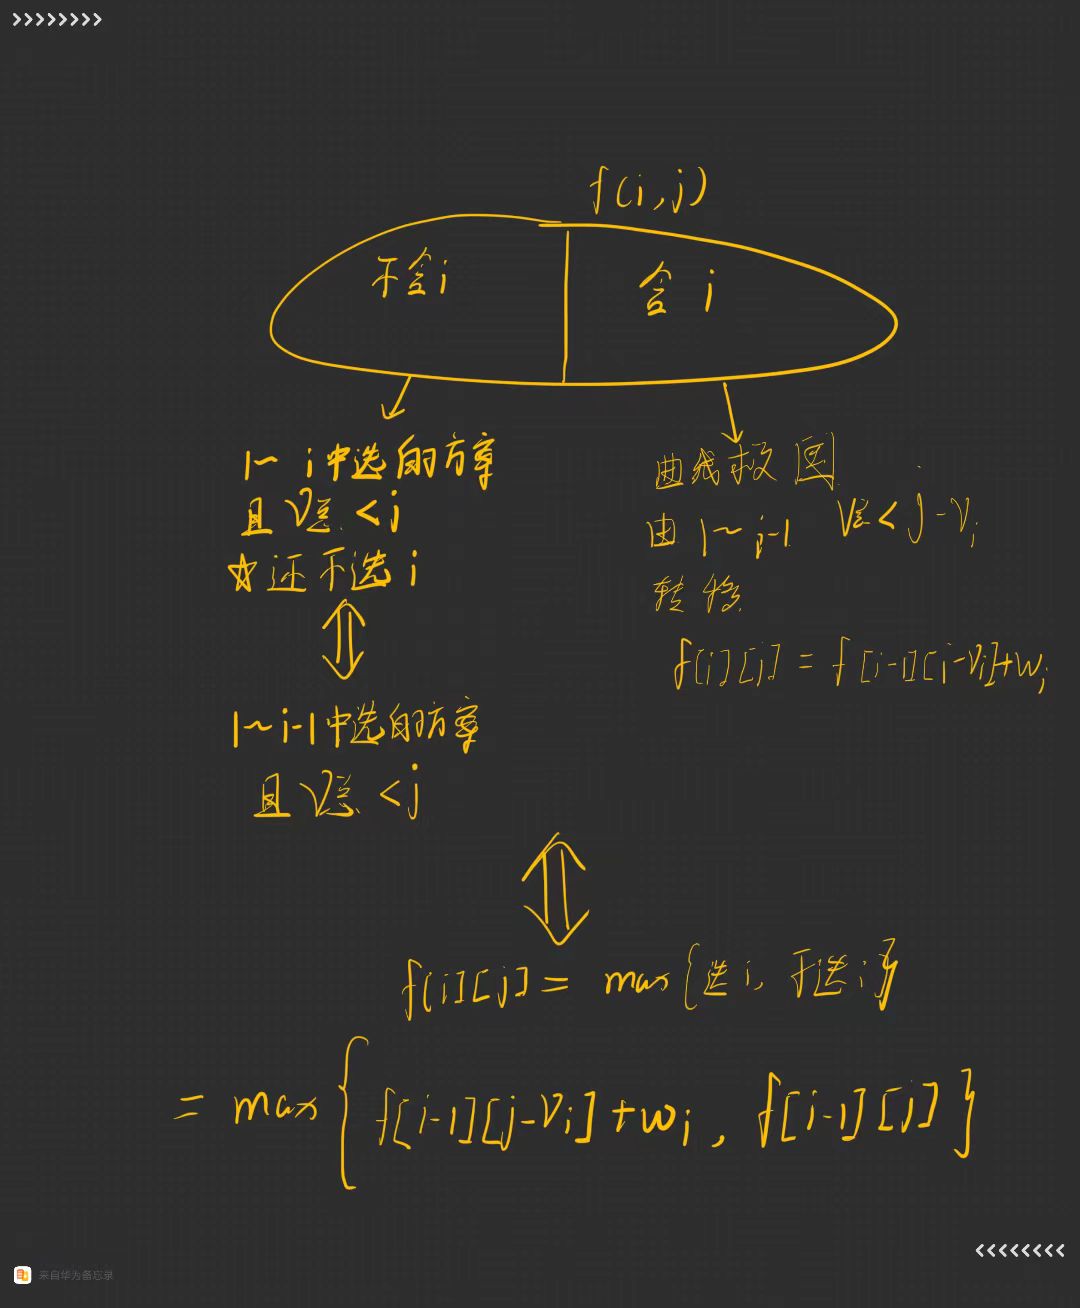 f(i,j)
不含i
含 i
1~ i中选的方案
且 V总 <j
☆还不选 i
1~i-1中选的方案
且 V总 <j
曲线救国
由 1~ i-1 V总< j-vi
转移
f[i][j] = f[i-1][j-vi]+wi
f[i][j] = max{选i, 不选i}
= max{ f[i-1][j-vi]+wi , f[i-1][j] }
来自华为备忘录